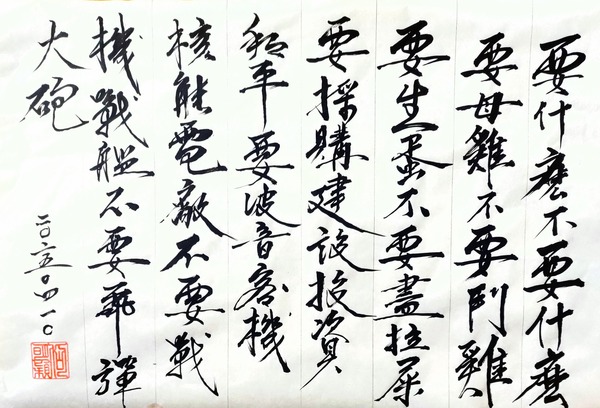 要什麼不要什麼
要母雞不要鬥雞
要生蛋不要盡拉屎
要採購建設投資
和平要波音客機
核能電廠不要戰
機戰艦不要飛彈
大砲
二〇二五〇四一〇